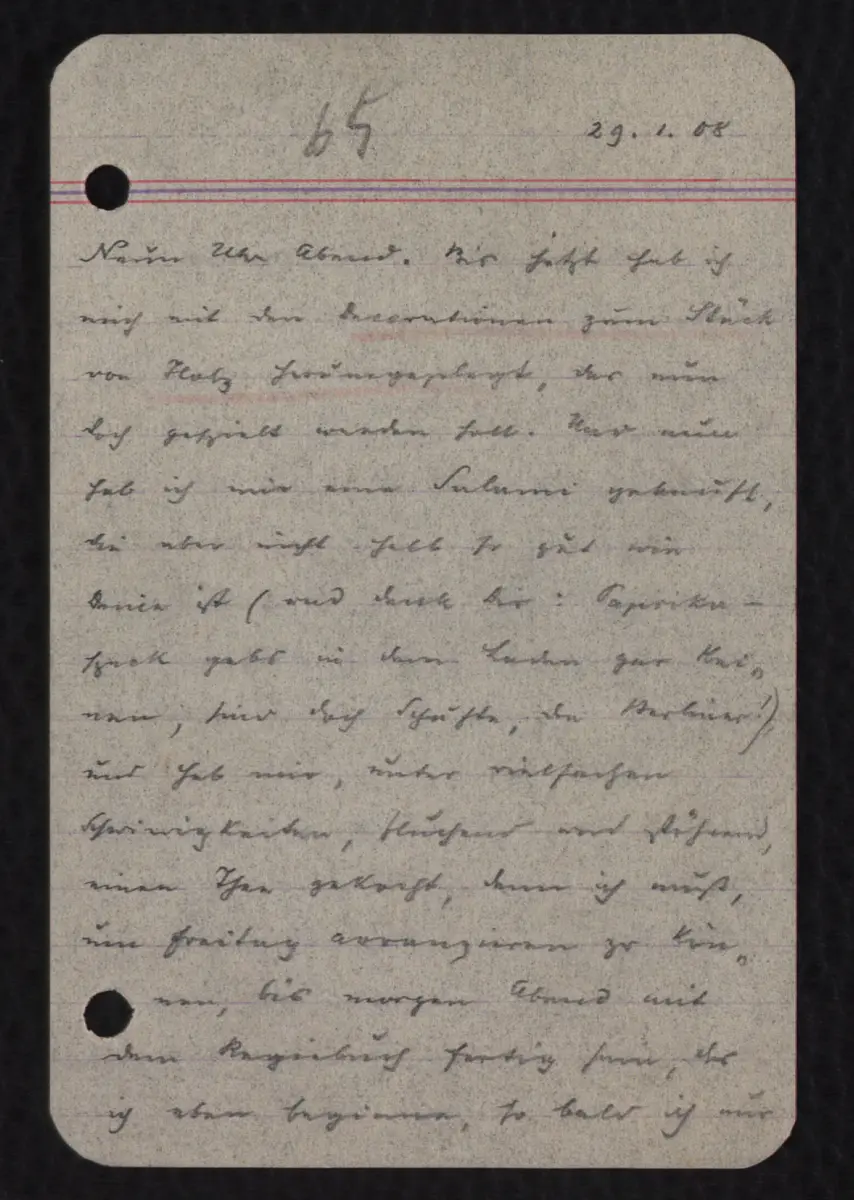 65
29. 1. 08
Neun Uhr Abend. Bis jetzt hab ich
mich mit den Decorationen zum Stück
von Holz herumgeplagt, das nun
doch gespielt werden soll. Und nun
hab ich mir eine Salami gekauft,
die aber nicht halb so gut wie
Deine ist (und denk Dir: Paprika-
speck gabs in dem Laden gar kei„
nen, sind doch Schufte, die Berliner!)
und hab mir, unter vielfachen
Schwierigkeiten, fluchend und stöhnend,
einen Thee gekocht, denn ich muß,
um Freitag arrangieren zu kön„
nen, bis morgen Abend mit
dem Regiebuch fertig sein, das
ich eben beginne, so bald ich nur